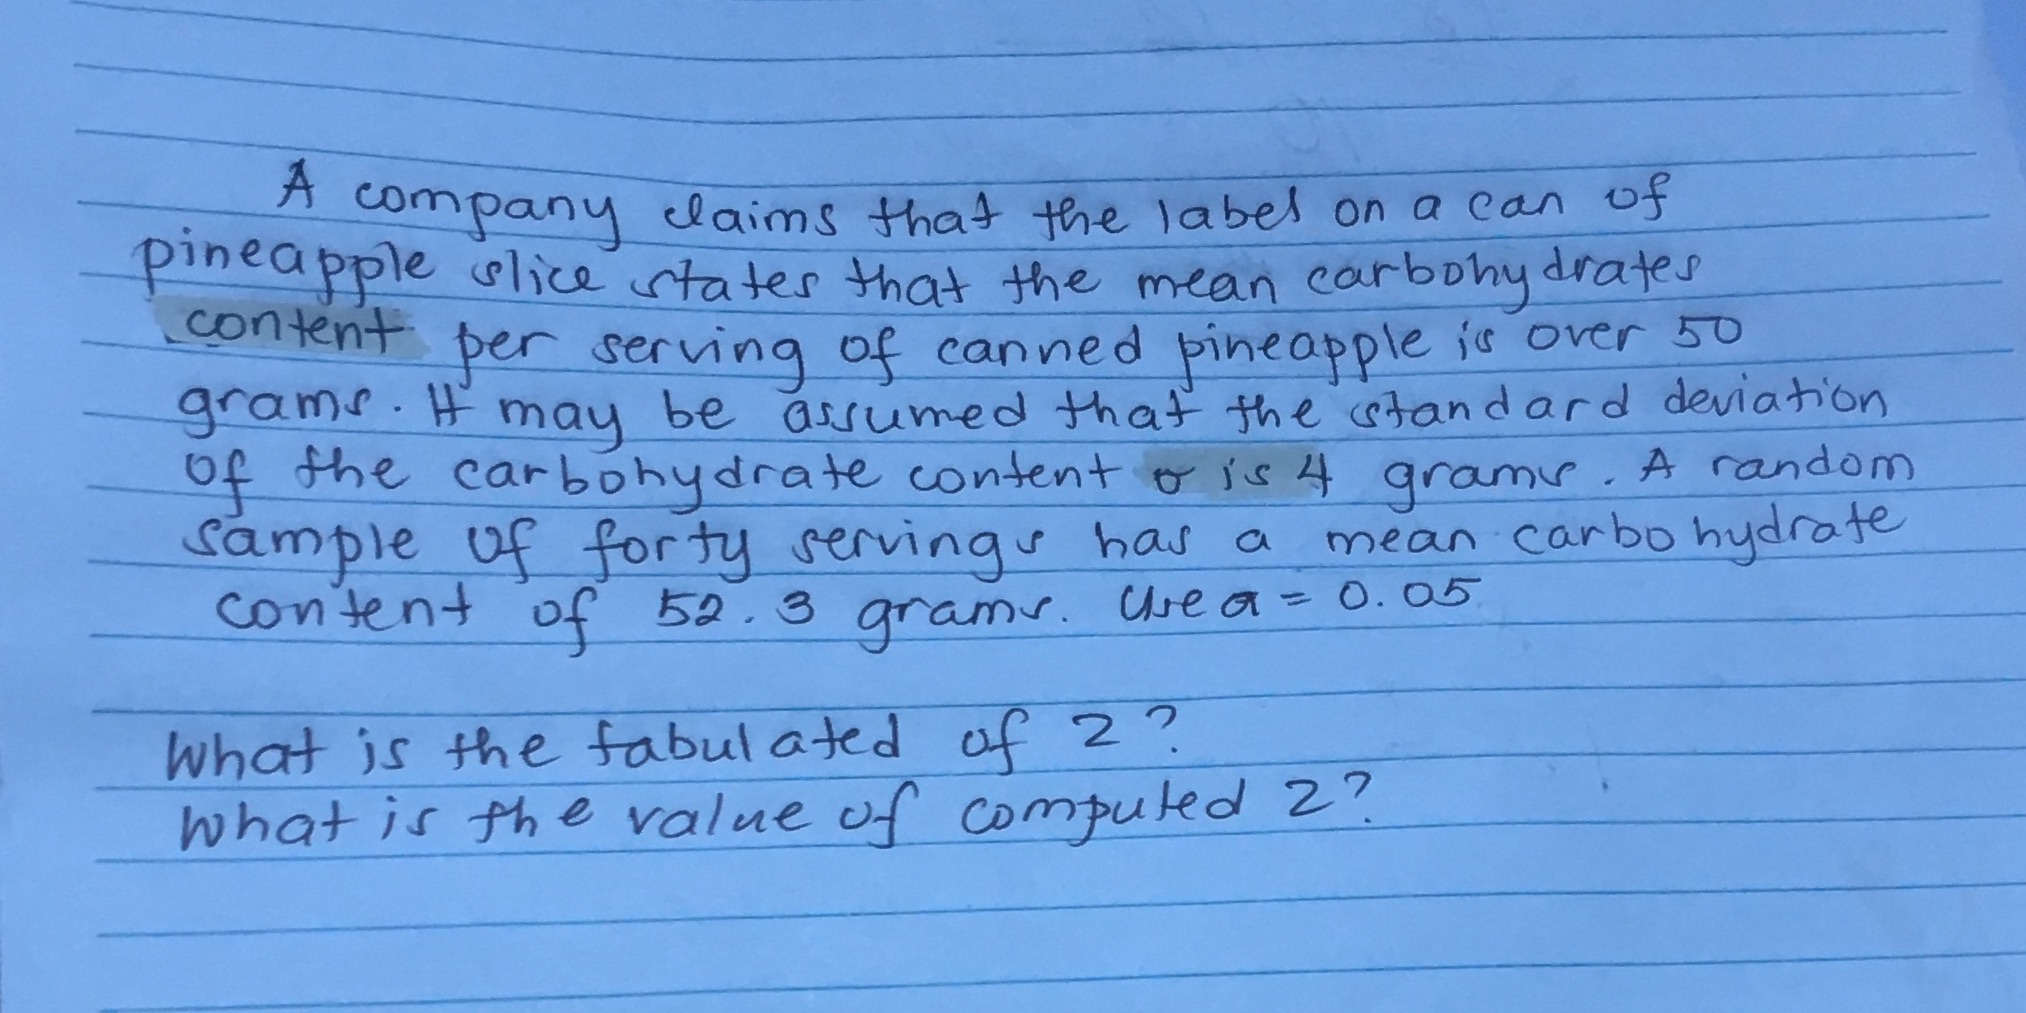 A company claims that the label on a can of
pineapple slice states that the mean carbohydrates
content per serving of canned pineapple is over 50
grams. It may be assumed that the standard deviation
of the carbohydrate content σ is 4 grams. A random
sample of forty servings has a mean carbohydrate
content of 52.3 grams. Use α = 0.05
What is the tabulated of z?
What is the value of computed z?